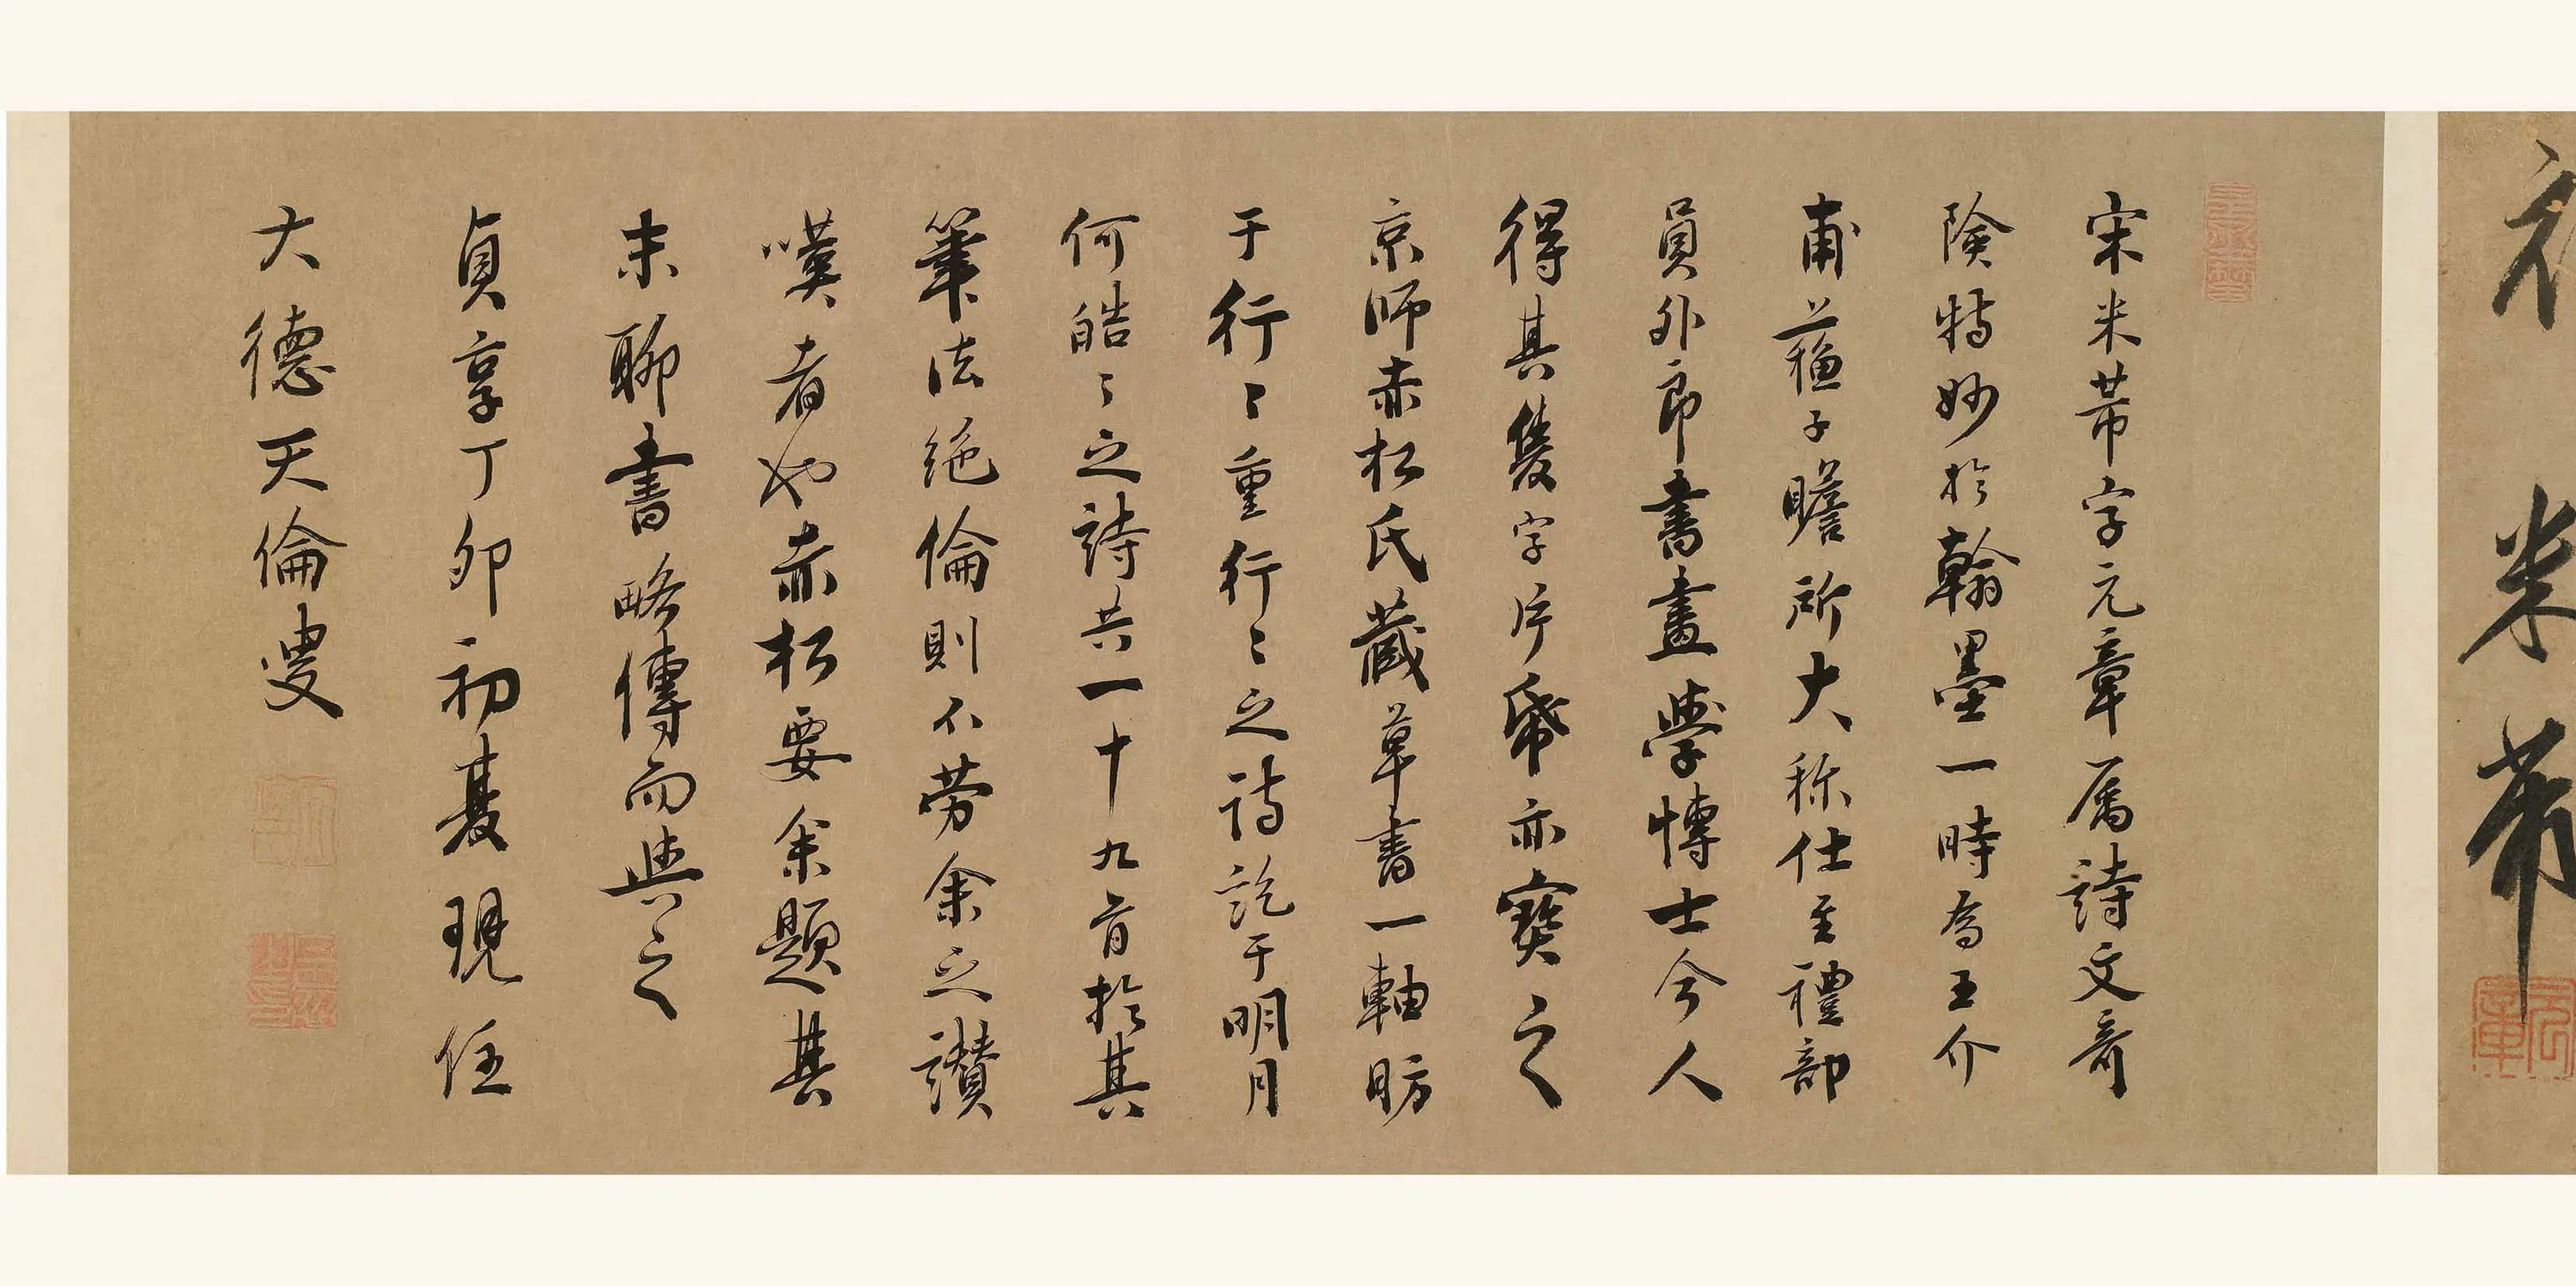 礼米芾
宋米芾字元章属詩文奇
険特妙於翰墨一時為王介
甫蘓子瞻所大称仕至禮部
員外郎書畫學愽士今人
得其隻字片帋亦寳之
京師赤松氏藏草書一軸昉
于行〻重行〻之詩訖于明月
何皓〻之詩共一十九首於其
筆法絶倫則不労余之讃
嘆者也赤松要余題其
末聊書略傳而與之
貞享丁卯初夏現住
大德天倫叟